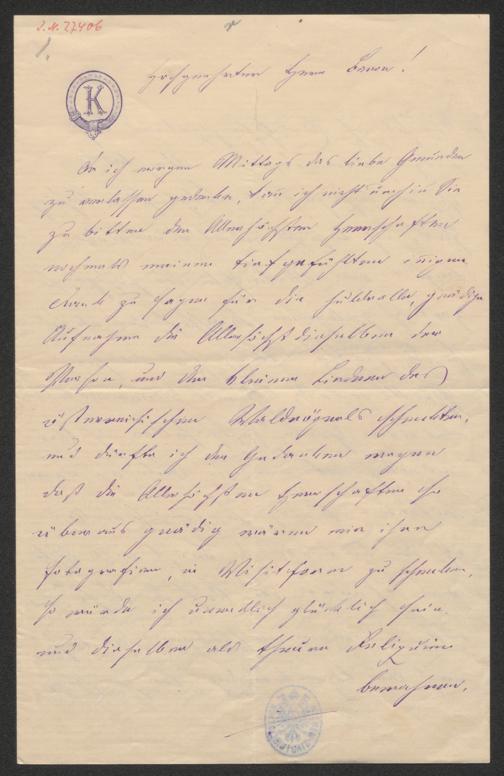 J.N. 27406
1.
K
Hochgeehrter Herr Baron!
Da ich morgen Mittags das liebe Gmunden
zu verlassen gedenke, kann ich nicht umhin Sie
zu bitten den Allerhöchsten Herrschaften
nochmals meinen tiefgefühlten innigen
Dank zu sagen für die huldvolle, gnädige
Aufnahme die Allerhöchstdieselben der
Person, und den kleinen Liedern des
österreichischen Waldvögels schenkten,
und dürfte ich den Gedanken wagen
daß die Allerhöchsten Herrschaften so
überaus gnädig wären mir ihre
Fotografien, in Visitform zu schenken,
so würde ich unendlich glücklich sein
und dieselben als theure Reliquien
bewahren.